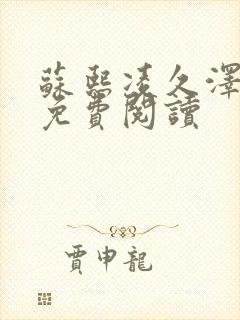 蘇熙凌久澤
免費閱讀
賈申龍